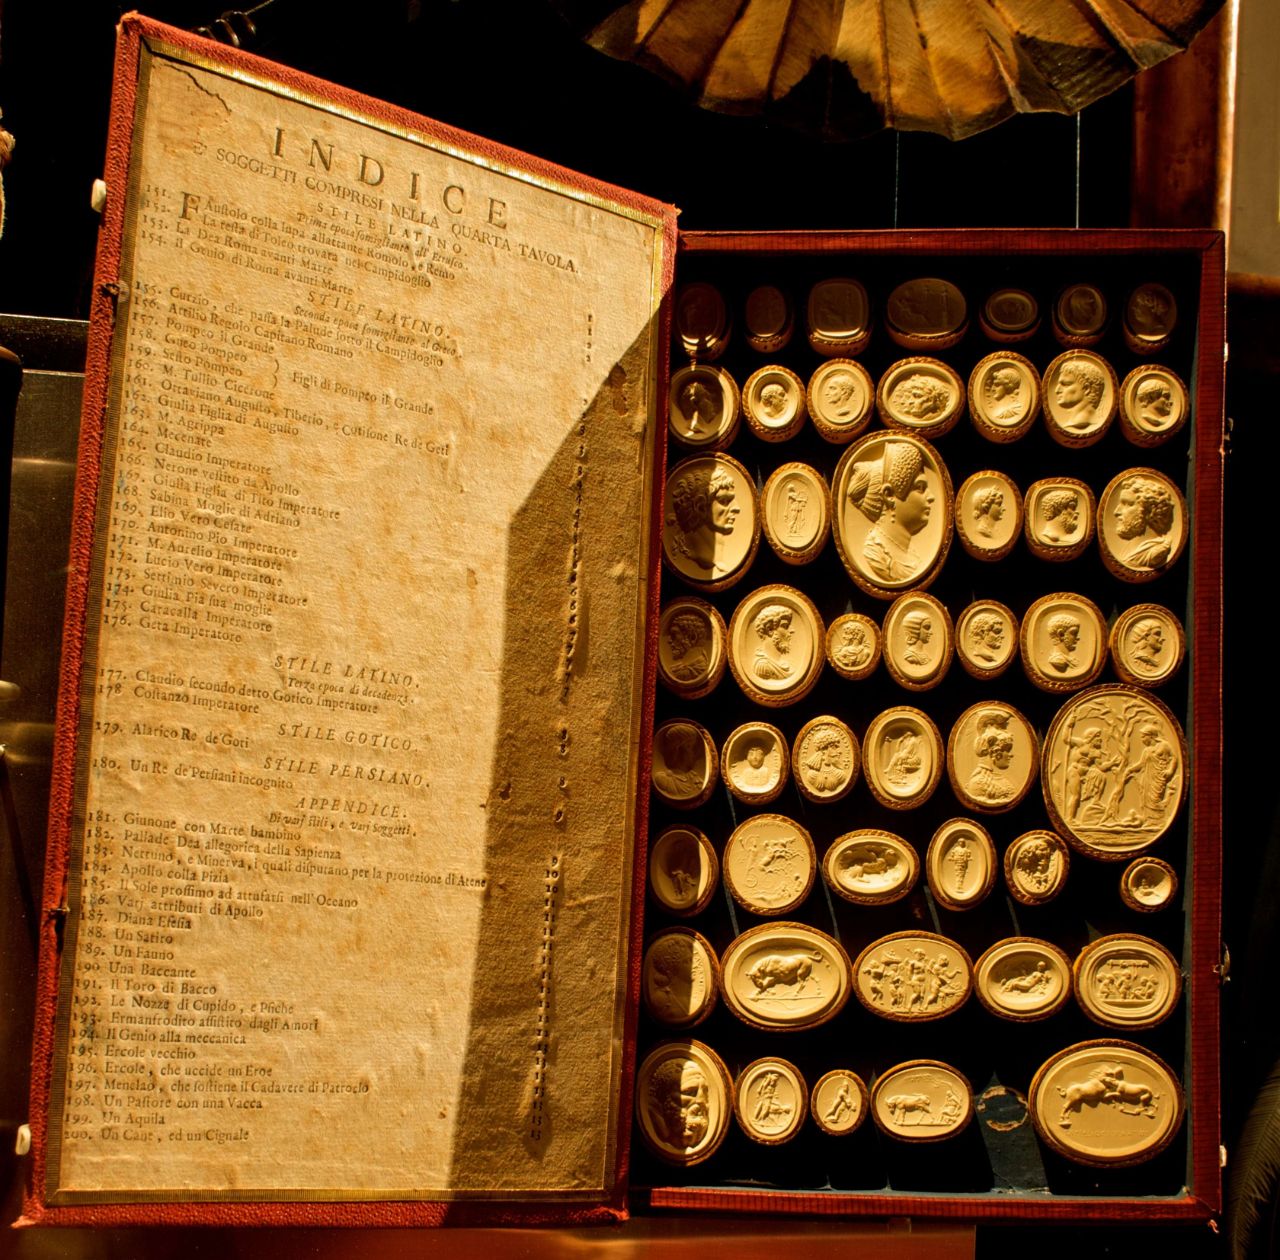 INDICE
E' SOGGETTI COMPRESI NELLA QUARTA TAVOLA.
STILE LATINO.
Prima epoca somigliante all' Etrusco.
151. FAustolo colla lupa allattante Romolo, e Remo
152. La testa di Toleo trovata nel Campidoglio
153. La Dea Roma avanti Marte
154. Il Genio di Roma avanti Marte
STILE LATINO.
Seconda epoca somigliante al Greco.
155. Curzio, che passa la Palude sotto il Campidoglio
156. Attilio Regolo Capitano Romano
157. Pompeo il Grande
158. Gneo Pompeo
159. Sesto Pompeo } Figli di Pompeo il Grande
160. M. Tullio Cicerone
161. Ottaviano Augusto, Tiberio, e Cotisone Re de Geti
162. Giulia Figlia di Augusto
163. M. Agrippa
164. Mecenate
165. Claudio Imperatore
166. Nerone vestito da Apollo
167. Giulia Figlia di Tito Imperatore
168. Sabina Moglie di Adriano
169. Elio Vero Cesare
170. Antonino Pio Imperatore
171. M. Aurelio Imperatore
172. Lucio Vero Imperatore
173. Settimio Severo Imperatore
174. Giulia Pia sua moglie
175. Caracalla Imperatore
176. Geta Imperatore
STILE LATINO.
Terza epoca di decadenza.
177. Claudio secondo detto Gotico Imperatore
178 Costanzo Imperatore
STILE GOTICO.
179. Alarico Re de' Goti
STILE PERSIANO.
180. Un Re de' Persiani incognito
APPENDICE.
Di varj stili, e varj Soggetti.
181. Giunone con Marte bambino
182. Pallade Dea allegorica della Sapienza
183. Nettuno, e Minerva, i quali disputano per la protezione di Atene
184. Apollo colla Pizia
185. Il Sole prossimo ad attufarsi nell'Oceano
186. Varj attributi di Apollo
187. Diana Efesia
188. Un Satiro
189. Un Fauno
190. Una Baccante
191. Il Toro di Bacco
192. Le Nozze di Cupido, e Psiche
193. Ermanfrodito assistito dagli Amori
194. Il Genio alla meccanica
195. Ercole vecchio
196. Ercole, che uccide un Eroe
197. Menelao, che sostiene il Cadavere di Patroclo
198. Un Pastore con una Vacca
199. Un Aquila
200. Un Cane, ed un Cignale